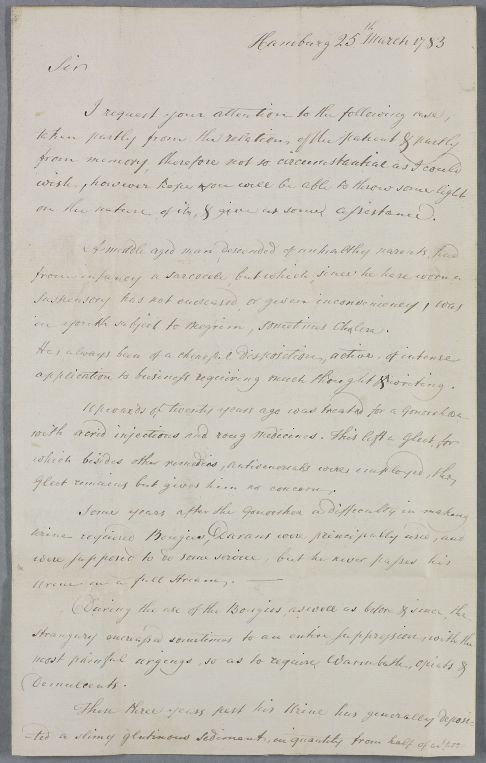 Hamburg 25th March 1783
Sir
I request your attention to the following case,
taken partly from the relation of the patient & partly
from memory, therefore not so circumstantial as I could
wish, however hope you will be able to throw some light
on the nature of it, & give us some assistance.
A middle aged man, descended of unhealthy parents, had
from infancy a sarcocele, but which, since he here worn a
suspensory has not encreased, or given inconveniency, was
in youth subject to megrim, sometimes Cholera.
Has always been of a chearful disposition, active, of intense
application to business requiring much thought & writing.
Upwards of twenty years ago was treated for a Gonorrhoea
with acrid injections and roug medicines. This left a Gleet, for
which besides other remedies, antivenereals were employed, the
Gleet remains but gives him no concern.
Some years after the Gonorrhea a difficulty in making
Urine required Bougies, Darans were principally used, and
were supposed to do some service, but he never passes his
Urine in a full Stream. —
During the use of the Bougies, as well as before & since, the
Strangury encreased sometimes to an entire suppression, with the
most painful urgings, so as to require Warmbath, opiats &
Demulcents.
These three years past his Urine has generally deposi-
-ted a slimy glutinous sediment, in quantity from half of a